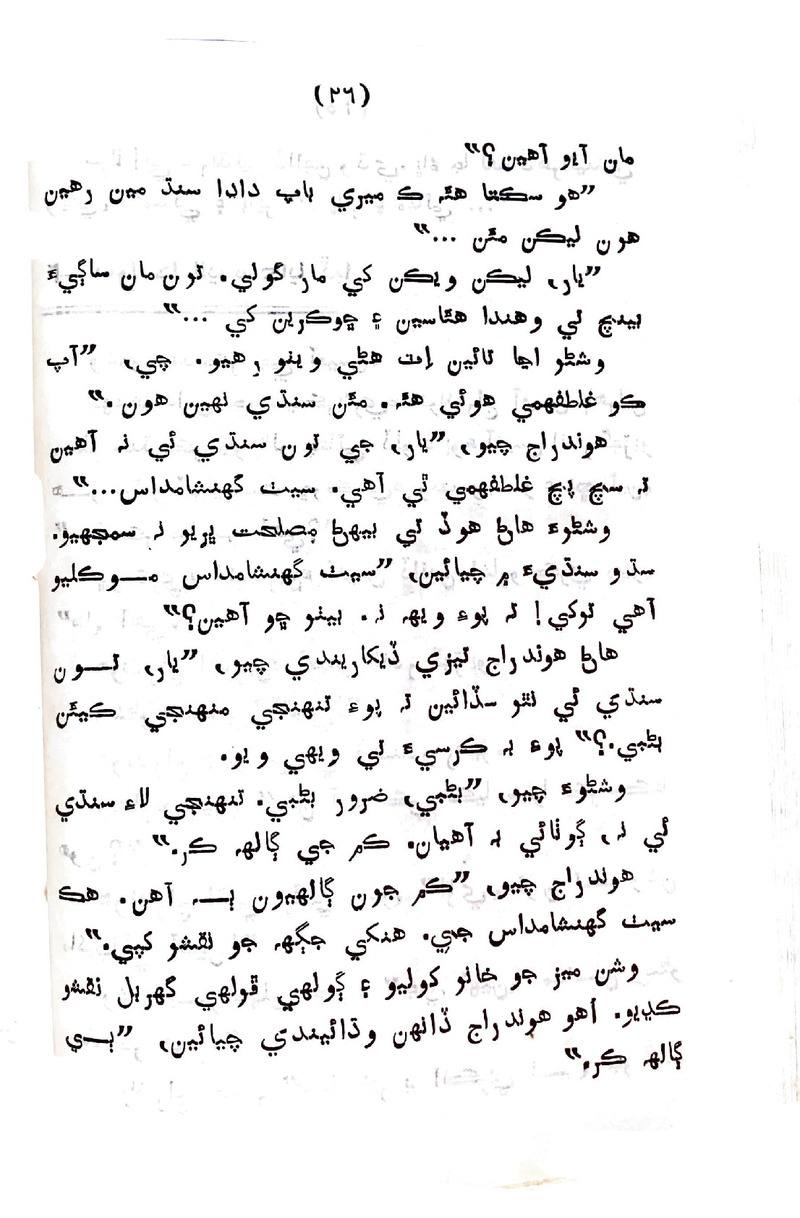 (٢٦)
مان آيو آهين؟“
”هو سڪتا هئه ڪ ميري باپ دادا سنڌ مين رهين
هون ليڪن مئن ...“
”يار، ليڪن ويڪن کي مار گولي. تون مان ساڳيءَ
بينچ تي وهندا هئاسين ۽ ڇوڪرين کي ...“
وشڻو اڃا تائين اِت هڻي ويٺو رهيو. چي، ”آپ
ڪو غلطفهمي هوئي هئه. مئن سنڌي نهين هون.“
هوندراج چيو، ”يار، جي تون سنڌي ئي نہ آهين
تہ سچ پچ غلطفهمي ٿي آهي. سيٺ گهنشامداس...“
وشڻوءَ هاڻ هوڏ تي بيهڻ مصلحت ڀريو نہ سمجهيو.
سڌو سنڌيءَ ۾ چيائين، ”سيٺ گهنشامداس موڪليو
آهي توکي! تہ پوءِ ويهہ نہ. بيٺو ڇو آهين؟“
هاڻ هوندراج تيزي ڏيکاريندي چيو، ”يار، تون
سنڌي ئي نٿو سڏائين تہ پوءِ تنهنجي منهنجي ڪيئن
بڻبي.؟“ پوءِ بہ ڪرسيءَ تي ويهي ويو.
وشڻوءَ چيو، ”بڻبي، ضرور بڻبي. تنهنجي لاءِ سنڌي
ئي نہ، ڳوٺائي بہ آهيان. ڪم جي ڳالهہ ڪر.“
هوندراج چيو، ”ڪم جون ڳالهيون ٻہ آهن. هڪ
سيٺ گهنشامداس جي. هنکي جڳهہ جو نقشو کپي.“
وشن ميز جو خانو کوليو ۽ ڳولهي ڦولهي گهربل نقشو
ڪڍيو. اهو هوندراج ڏانهن وڌائيندي چيائين، ”ٻي
ڳالهہ ڪر.“